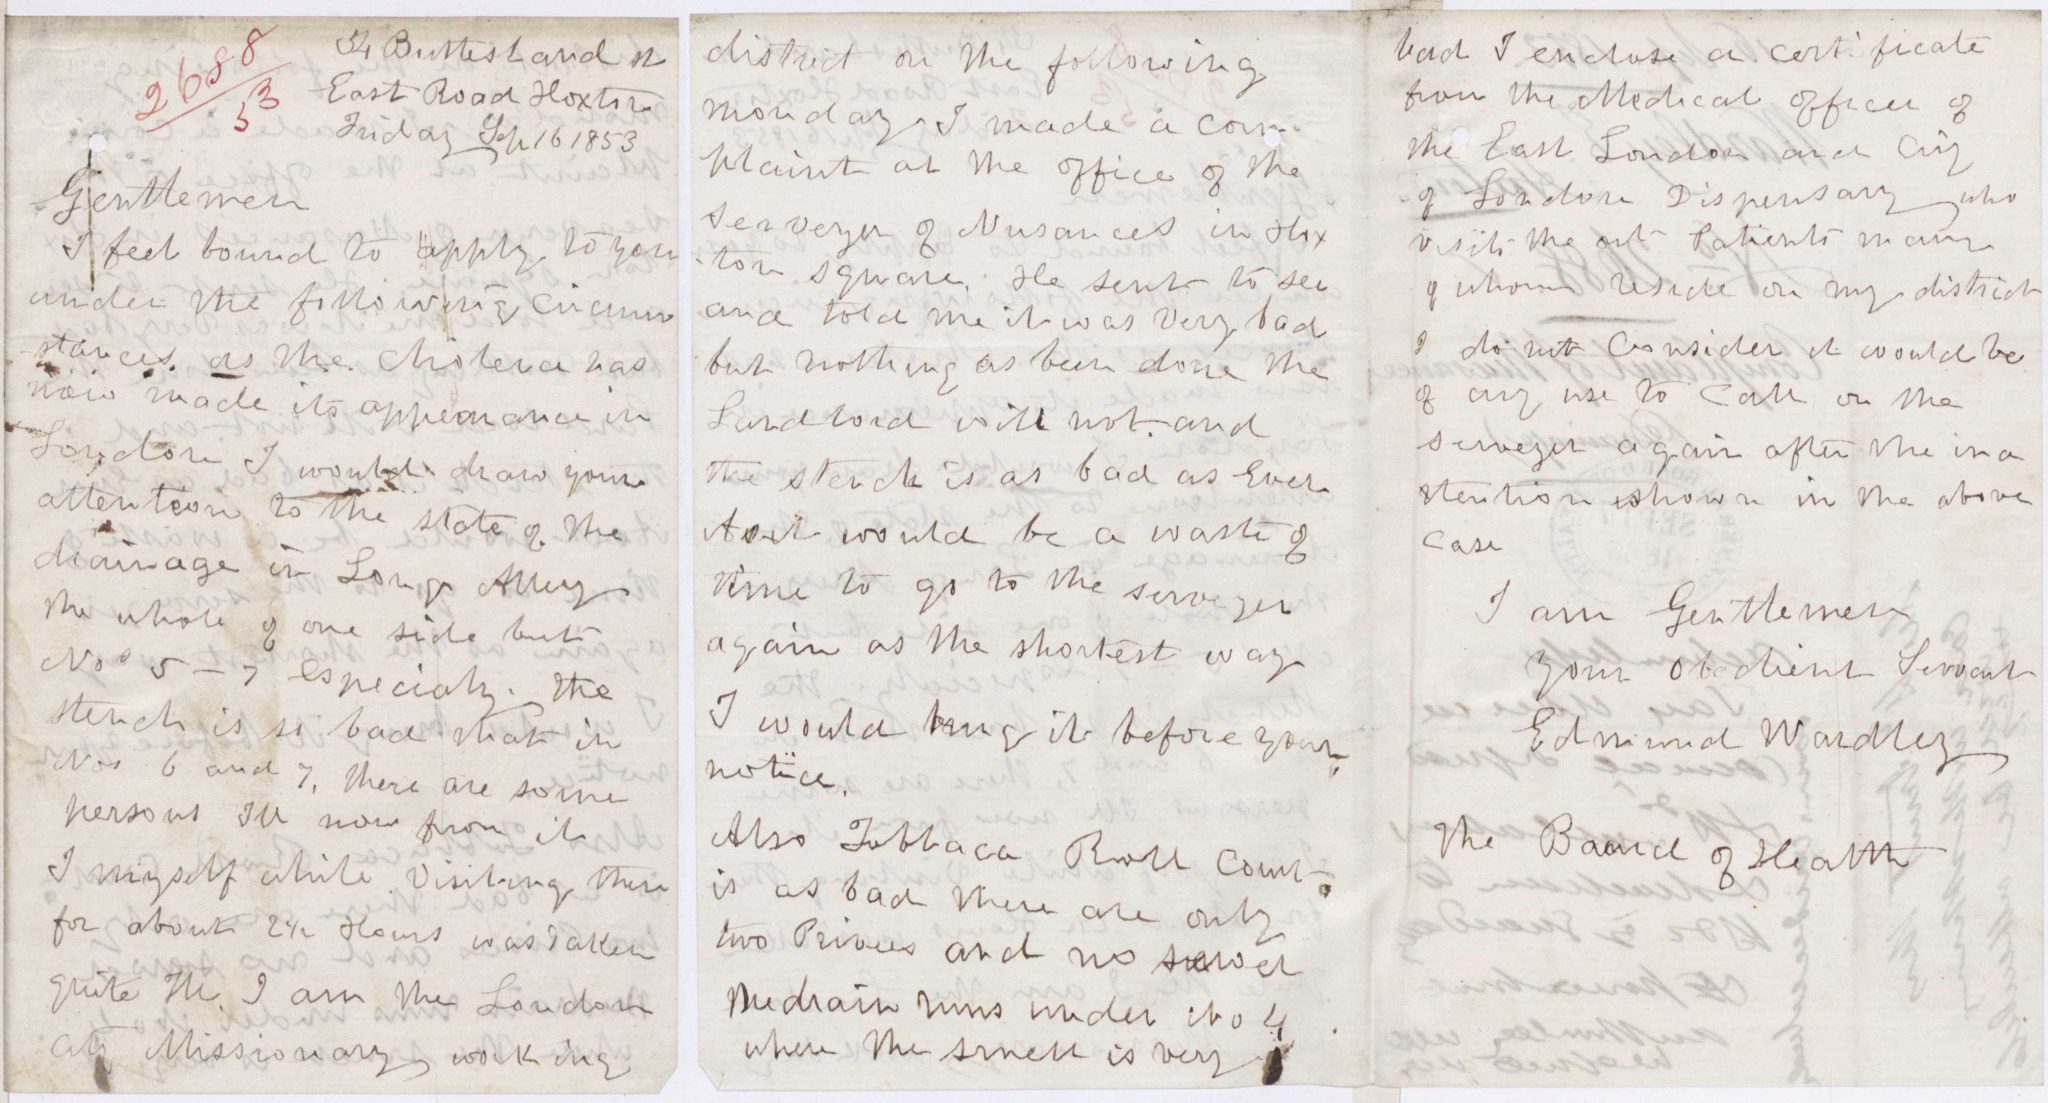 2688
53
34 Buttesland st
East Road Hoxton
Friday Sep 16 1853
Gentlemen
I feel bound to apply to you
under the following Circum
stances. as the Cholera has
now made its appearance in
London I would draw your
attention to the state of the
drainage in Long Alley
the whole of one side but
Nos 5 – 7 Especialy. the
stench is so bad that in
Nos 6 and 7, there are some
persons Ill now from it
I myself while Visiting there
for about 2½ Hours was taken
quite Ill I am the London
City Missionary working
district on the following
monday I made a com
plaint at the office of the
serveyer of Nusances in Hox
ton square. He sent to see
and told me it was Very bad
but nothing as been done the
Landlord will not. and
the stench is as bad as Ever
As it would be a waste of
time to go to the serveyer
again as the shortest way
I would bring it before your
notice.
Also Tobbaca Roll Court
is as bad there are only
two Privees and no sewer
the drain runs under No 4
where the smell is very
bad I enclose a certificate
from the Medical officer of
the East London and City
of London Dispensary who
visits the out Patients many
of whom reside on my district
I do not Consider it would be
of any use to Call on the
serveyer again after the ina
ttention shown in the above
Case
I am Gentlemen
your obedient Servant
Edmund Wardley
The Board of Health